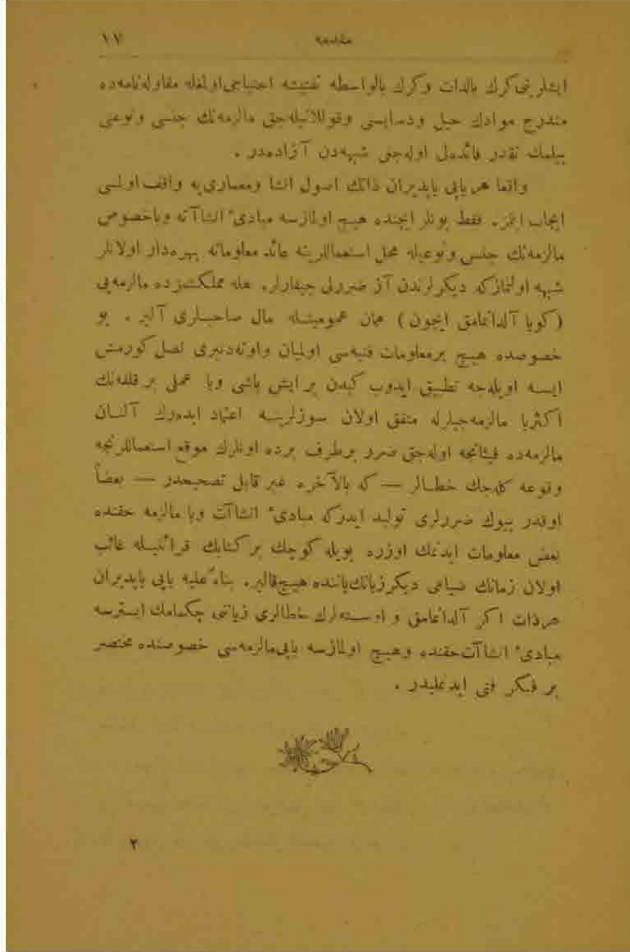 مقدمه ١٧
ايشلرينى كرك بالذات وكرك بالواسطه تفتيشه احتياجى اولمغله مقاوله‌نامه‌ده
مندرج موادك حيل ودسايسنى وقوللانيله‌جق مالزمه‌نك جنسى ونوعنى
بيلمك نقدر فائده‌لى اوله‌جغى شبهه‌دن آزاده‌در .
واقعا هر ياپى ياپديران ذاتك اصول انشا ومعمارى‌يه واقف اولمسى
ايجاب ايتمز . فقط بونلر ايچنده هيچ اولمازسه مبادئ انشاآته وباخصوص
مالزمه‌نك جنس ونوعيله محل استعماللرينه عائد معلوماته بهره‌دار اولانلر
شبهه اولنمازكه ديكرلرندن آز ضررلى چيقارلر. هله مملكتمزده مالزمه‌يى
(كويا آلدانمامق ايچون) همان عموميتله مال صاحبلرى آلير . بو
خصوصده هيچ برمعلومات فنيه‌سى اولميان واوته‌دنبرى نصل كورمش
ايسه اويله‌جه تطبيق ايدوب كيدن بر ايش باشى ويا عملى بر قلفه‌نك
اكثريا مالزمه‌جيلرله متفق اولان سوزلرينه اعتماد ايده‌رك آلنان
مالزمه‌ده فيئاتجه اوله‌جق ضرر برطرف برده اونلرك موقع استعماللرنجه
وقوعه كله‌جك خطالر — كه بالآخره غير قابل تصحيحدر — بعضاً
اوقدر بيوك ضررلرى توليد ايدركه مبادئ انشاآت ويا مالزمه حقنده
بعض معلومات ايدنمك اوزره بويله كوچك بر كتابك قرائتيله غائب
اولان زمانك ضياعى ديكر زيانك ياننده هيچ قالير. بناءً عليه ياپى ياپديران
هرذات اكر آلدانمامق و اوسته‌لرك خطالرى زياننى چكمامك ايسترسه
مبادئ انشاآت حقنده وهيچ اولمازسه ياپى مالزمه‌سى خصوصنده مختصر
بر فكر فنى ايدنمليدر .
٢